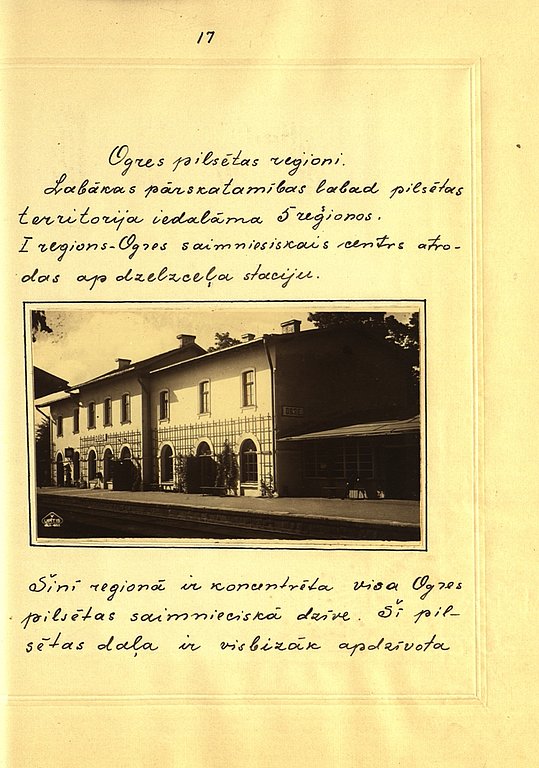 17
Ogres pilsētas regioni.
Labākas pārskatamības labad pilsētas
territorija iedalāma 5 reģionos.
I regions-Ogres saimniesiskais centrs atro-
das ap dzelzceļa staciju.
OGRE
Šinī regionā ir koncentrēta visa Ogres
pilsētas saimnieciskā dzīve. Šī pil-
sētas daļa ir visbizāk apdzīvota